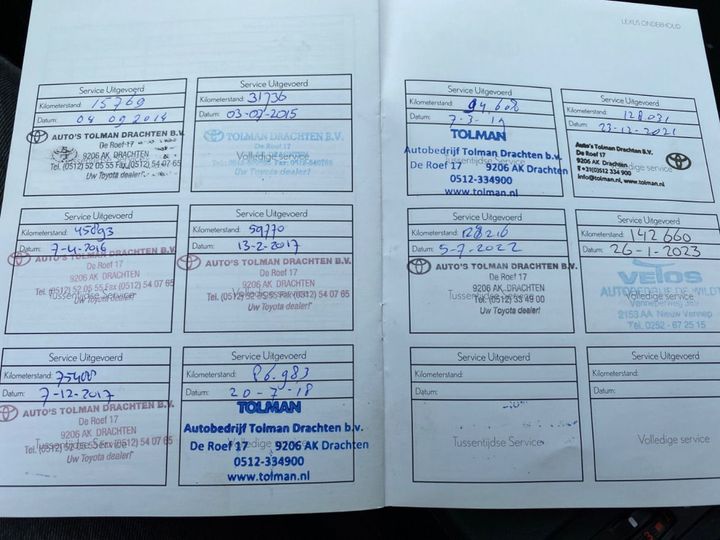 LEXUS ONDERHOUD
Service Uitgevoerd
Kilometerstand: 15769
Datum: 04 09 2014
AUTO'S TOLMAN DRACHTEN B.V.
De Roef 17
9206 AK DRACHTEN
Tel. (0512) 52 05 55 Fax (0512) 54 07 65
Uw Toyota dealer!
Service Uitgevoerd
Kilometerstand: 31736
Datum: 03-07-2015
TOLMAN DRACHTEN B.V.
Volledige service
Service Uitgevoerd
Kilometerstand: 45893
Datum: 7-4-2016
AUTO'S TOLMAN DRACHTEN B.V.
De Roef 17
9206 AK DRACHTEN
Tel. (0512) 52 05 55 Fax (0512) 54 07 65
Tussentijdse Service
Uw Toyota dealer!
Service Uitgevoerd
Kilometerstand: 59770
Datum: 13-2-2017
AUTO'S TOLMAN DRACHTEN B.V.
De Roef 17
9206 AK DRACHTEN
Tel. (0512) 52 05 55 Fax (0512) 54 07 65
Uw Toyota dealer!
Service Uitgevoerd
Kilometerstand: 75408
Datum: 7-12-2017
AUTO'S TOLMAN DRACHTEN B.V.
De Roef 17
9206 AK DRACHTEN
Tel. (0512) 52 05 55 Fax (0512) 54 07 65
Uw Toyota dealer!
Service Uitgevoerd
Kilometerstand: 86.983
Datum: 20-7-'18
TOLMAN
Autobedrijf Tolman Drachten b.v.
De Roef 17 9206 AK Drachten
0512-334900
www.tolman.nl
Service Uitgevoerd
Kilometerstand: 94.608
Datum: 7-3-19
TOLMAN
Autobedrijf Tolman Drachten b.v.
De Roef 17 9206 AK Drachten
0512-334900
www.tolman.nl
Service Uitgevoerd
Kilometerstand: 128.031
Datum: 23-12-2021
AUTO'S TOLMAN DRACHTEN B.V.
De Roef 17
9206 AK Drachten
T +31(0)512 334 900
info@tolman.nl, www.tolman.nl
Service Uitgevoerd
Kilometerstand: 128216
Datum: 5-7-2022
AUTO'S TOLMAN DRACHTEN B.V.
De Roef 17
9206 AK DRACHTEN
Tussentijdse Service
Tel. (0512) 33 49 00
Uw Toyota dealer!
Service Uitgevoerd
Kilometerstand: 142660
Datum: 26-1-2023
Velos
AUTOBEDRIJF DE WILDT
Volledige service
Vennepenweg
2153 AA Nieuw Vennep
Tel. 0252 - 67 25 15
Service Uitgevoerd
Kilometerstand:
Datum:
Tussentijdse Service
Service Uitgevoerd
Kilometerstand:
Datum:
Volledige service